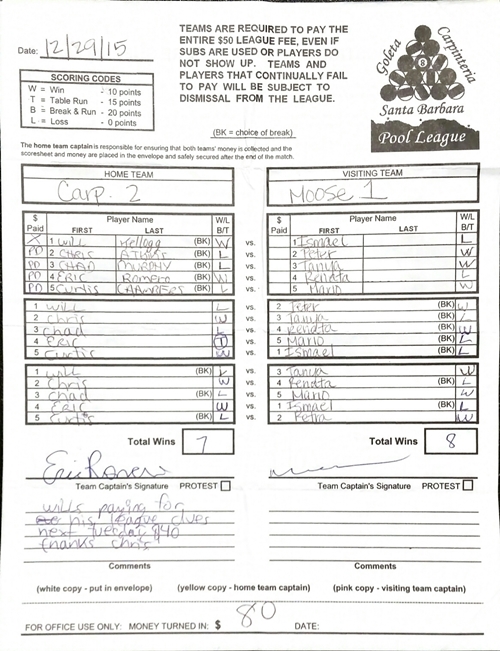 Date: 12/29/15
TEAMS ARE REQUIRED TO PAY THE
ENTIRE $50 LEAGUE FEE, EVEN IF
SUBS ARE USED OR PLAYERS DO
NOT SHOW UP. TEAMS AND
PLAYERS THAT CONTINUALLY FAIL
TO PAY WILL BE SUBJECT TO
DISMISSAL FROM THE LEAGUE.
(BK = choice of break)
SCORING CODES
W = Win - 10 points
T = Table Run - 15 points
B = Break & Run - 20 points
L = Loss - 0 points
Goleta Carpinteria
8
Santa Barbara
Pool League
The home team captain is responsible for ensuring that both teams' money is collected and the
scoresheet and money are placed in the envelope and safely secured after the end of the match.
HOME TEAM
Carp. 2
VISITING TEAM
Moose 1
$ Paid Player Name FIRST LAST W/L B/T
Player Name FIRST LAST W/L B/T
X 1 Will Kellogg (BK) W vs. 1 Ismael L
PD 2 CHRIS ATKINS (BK) L vs. 2 Peter W
PD 3 CHAD MURPHY (BK) L vs. 3 Tanya W
PD 4 ERIC ROMERO (BK) W vs. 4 Renata L
PD 5 Curtis CHAMBERS (BK) L vs. 5 Mario W
1 Will L vs. 2 Peter (BK) W
2 Chris W vs. 3 Tanya (BK) L
3 Chad L vs. 4 Renata (BK) W
4 ERIC T vs. 5 Mario (BK) L
5 Curtis W vs. 1 Ismael (BK) L
1 Will (BK) L vs. 3 Tanya W
2 Chris W vs. 4 Renata (BK) L
3 Chad (BK) L vs. 5 Mario W
4 Eric W vs. 1 Ismael (BK) L
5 Curtis (BK) L vs. 2 Petra W
Total Wins 7
Total Wins 8
Team Captain's Signature PROTEST
Team Captain's Signature PROTEST
Wills paying for
his league dues
next Tuesday $40
thanks Chris
Comments
Comments
(white copy - put in envelope) (yellow copy - home team captain) (pink copy - visiting team captain)
FOR OFFICE USE ONLY: MONEY TURNED IN: $ 80 DATE: